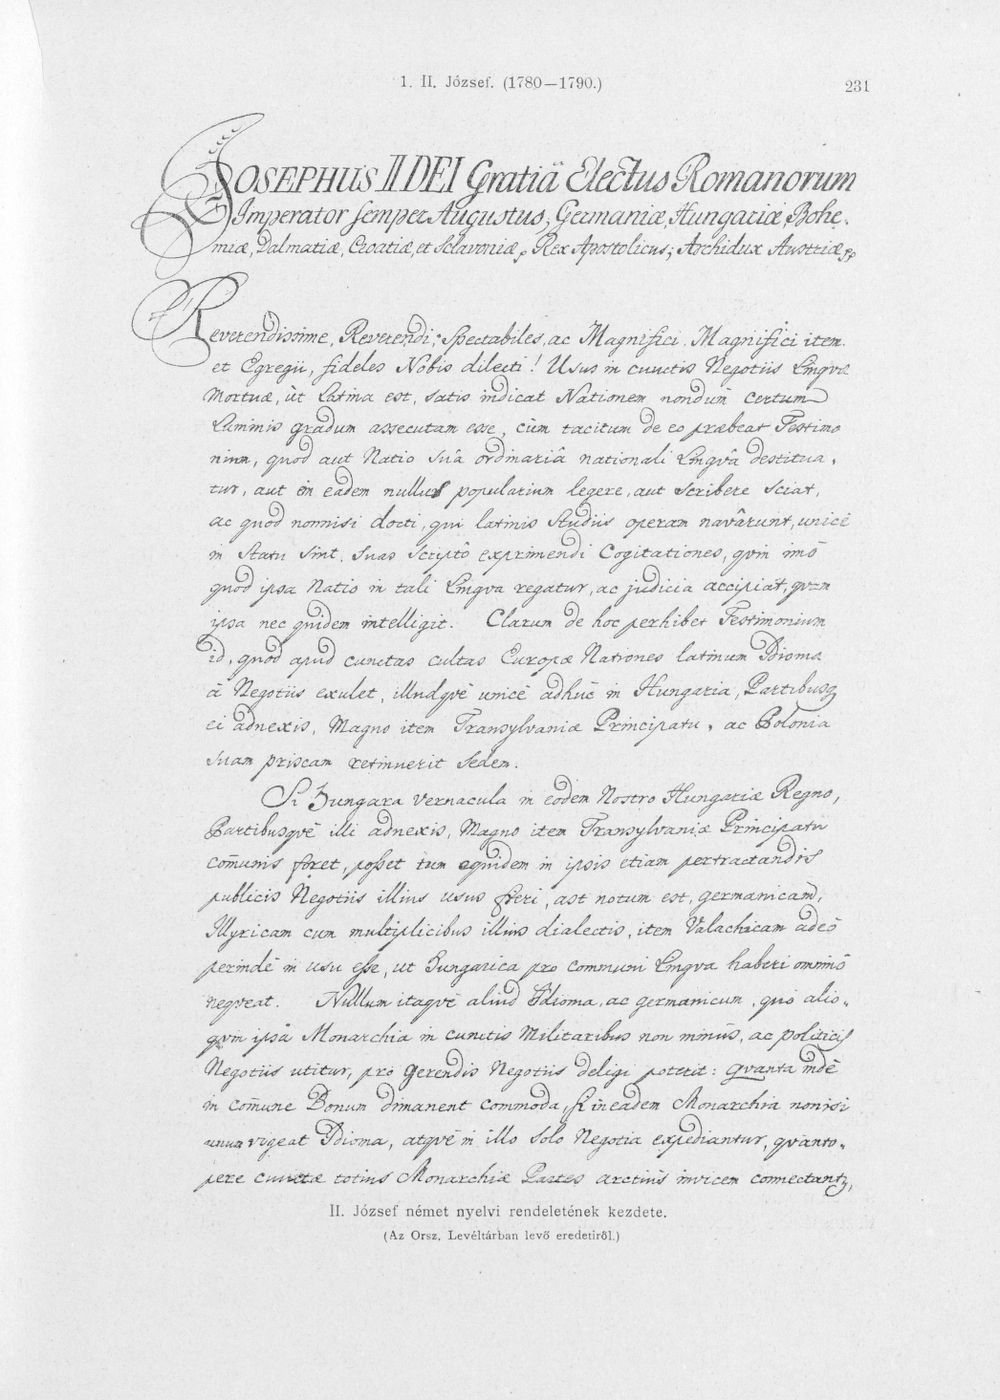 1. II. József. (1780—1790.)
231
JOSEPHUS II DEI Gratiâ Electus Romanorum
Imperator semper Augustus, Germaniæ, Hungariæ, Bohe-
miæ, Dalmatiæ, Croatiæ, et Sclavoniæ, Rex Apostolicus; Archidux Austriæ
Reverendissime, Reverendi, Spectabiles, ac Magnifici. Magnifici item
et Egregii, fideles Nobis dilecti! Usus in cunctis Negotiis Lingvæ
Mortuæ, ùt Latina est, satis indicat Nationem nondum certum
Luminis gradum assecutam esse, cùm tacitum de eo præbeat Testimo
nium, quod aut Natio suâ ordinariâ nationali Lingvâ destitua-
tur, aut in eadem nullus popularium legere, aut scribere sciat,
ac quod nonnisi docti, qui latinis studiis operam navârunt, unicè
in Statu sint. suas scriptô exprimendi Cogitationes, qvin imò
quod ipsa Natio in tali Lingva regatur, ac judicia accipiat, qvam
ipsa nec quidem intelligit. Clarum de hoc perhibet Testimonium
id, quod apud cunctas cultas Europæ Nationes latinum Idioma
â Negotiis exulet, illudqvè unicè adhùc in Hungaria, Partibusq
ei adnexis, Magno item Transylvaniæ Principatu, ac Polonia
suam priscam retinuerit Sedem.
Si Hungara vernacula in eodem Nostro Hungariæ Regno,
Partibusqvè illi adnexis, Magno item Transylvaniæ Principatu
com̄unis foret, posset tum equidem in ipsis etiam pertractandis
publicis Negotiis illius usus fieri, ast notum est, germanicam,
Illyricam cum multiplicibus illius dialectis, item Valachicam adeò
perindè in usu esse, ut Hungarica pro communi Lingva haberi omninò
neqveat. Nullum itaqvè aliud Idioma, ac germanicum, quò alio-
qvin ipsa Monarchia in cunctis Militaribus non minùs, ac politicis
Negotiis utitur, pro gerendis Negotiis deligi poterit: qvanta indè
in com̄une Bonum dimanent commoda, si in eadem Monarchia nonnisi
unum vigeat Idioma, atqvè in illo solo Negotia expediantur, qvanto-
pere cunctæ totius Monarchiæ Partes arctiùs invicem connectantur,
II. József német nyelvi rendeletének kezdete.
(Az Orsz. Levéltárban levő eredetiről.)